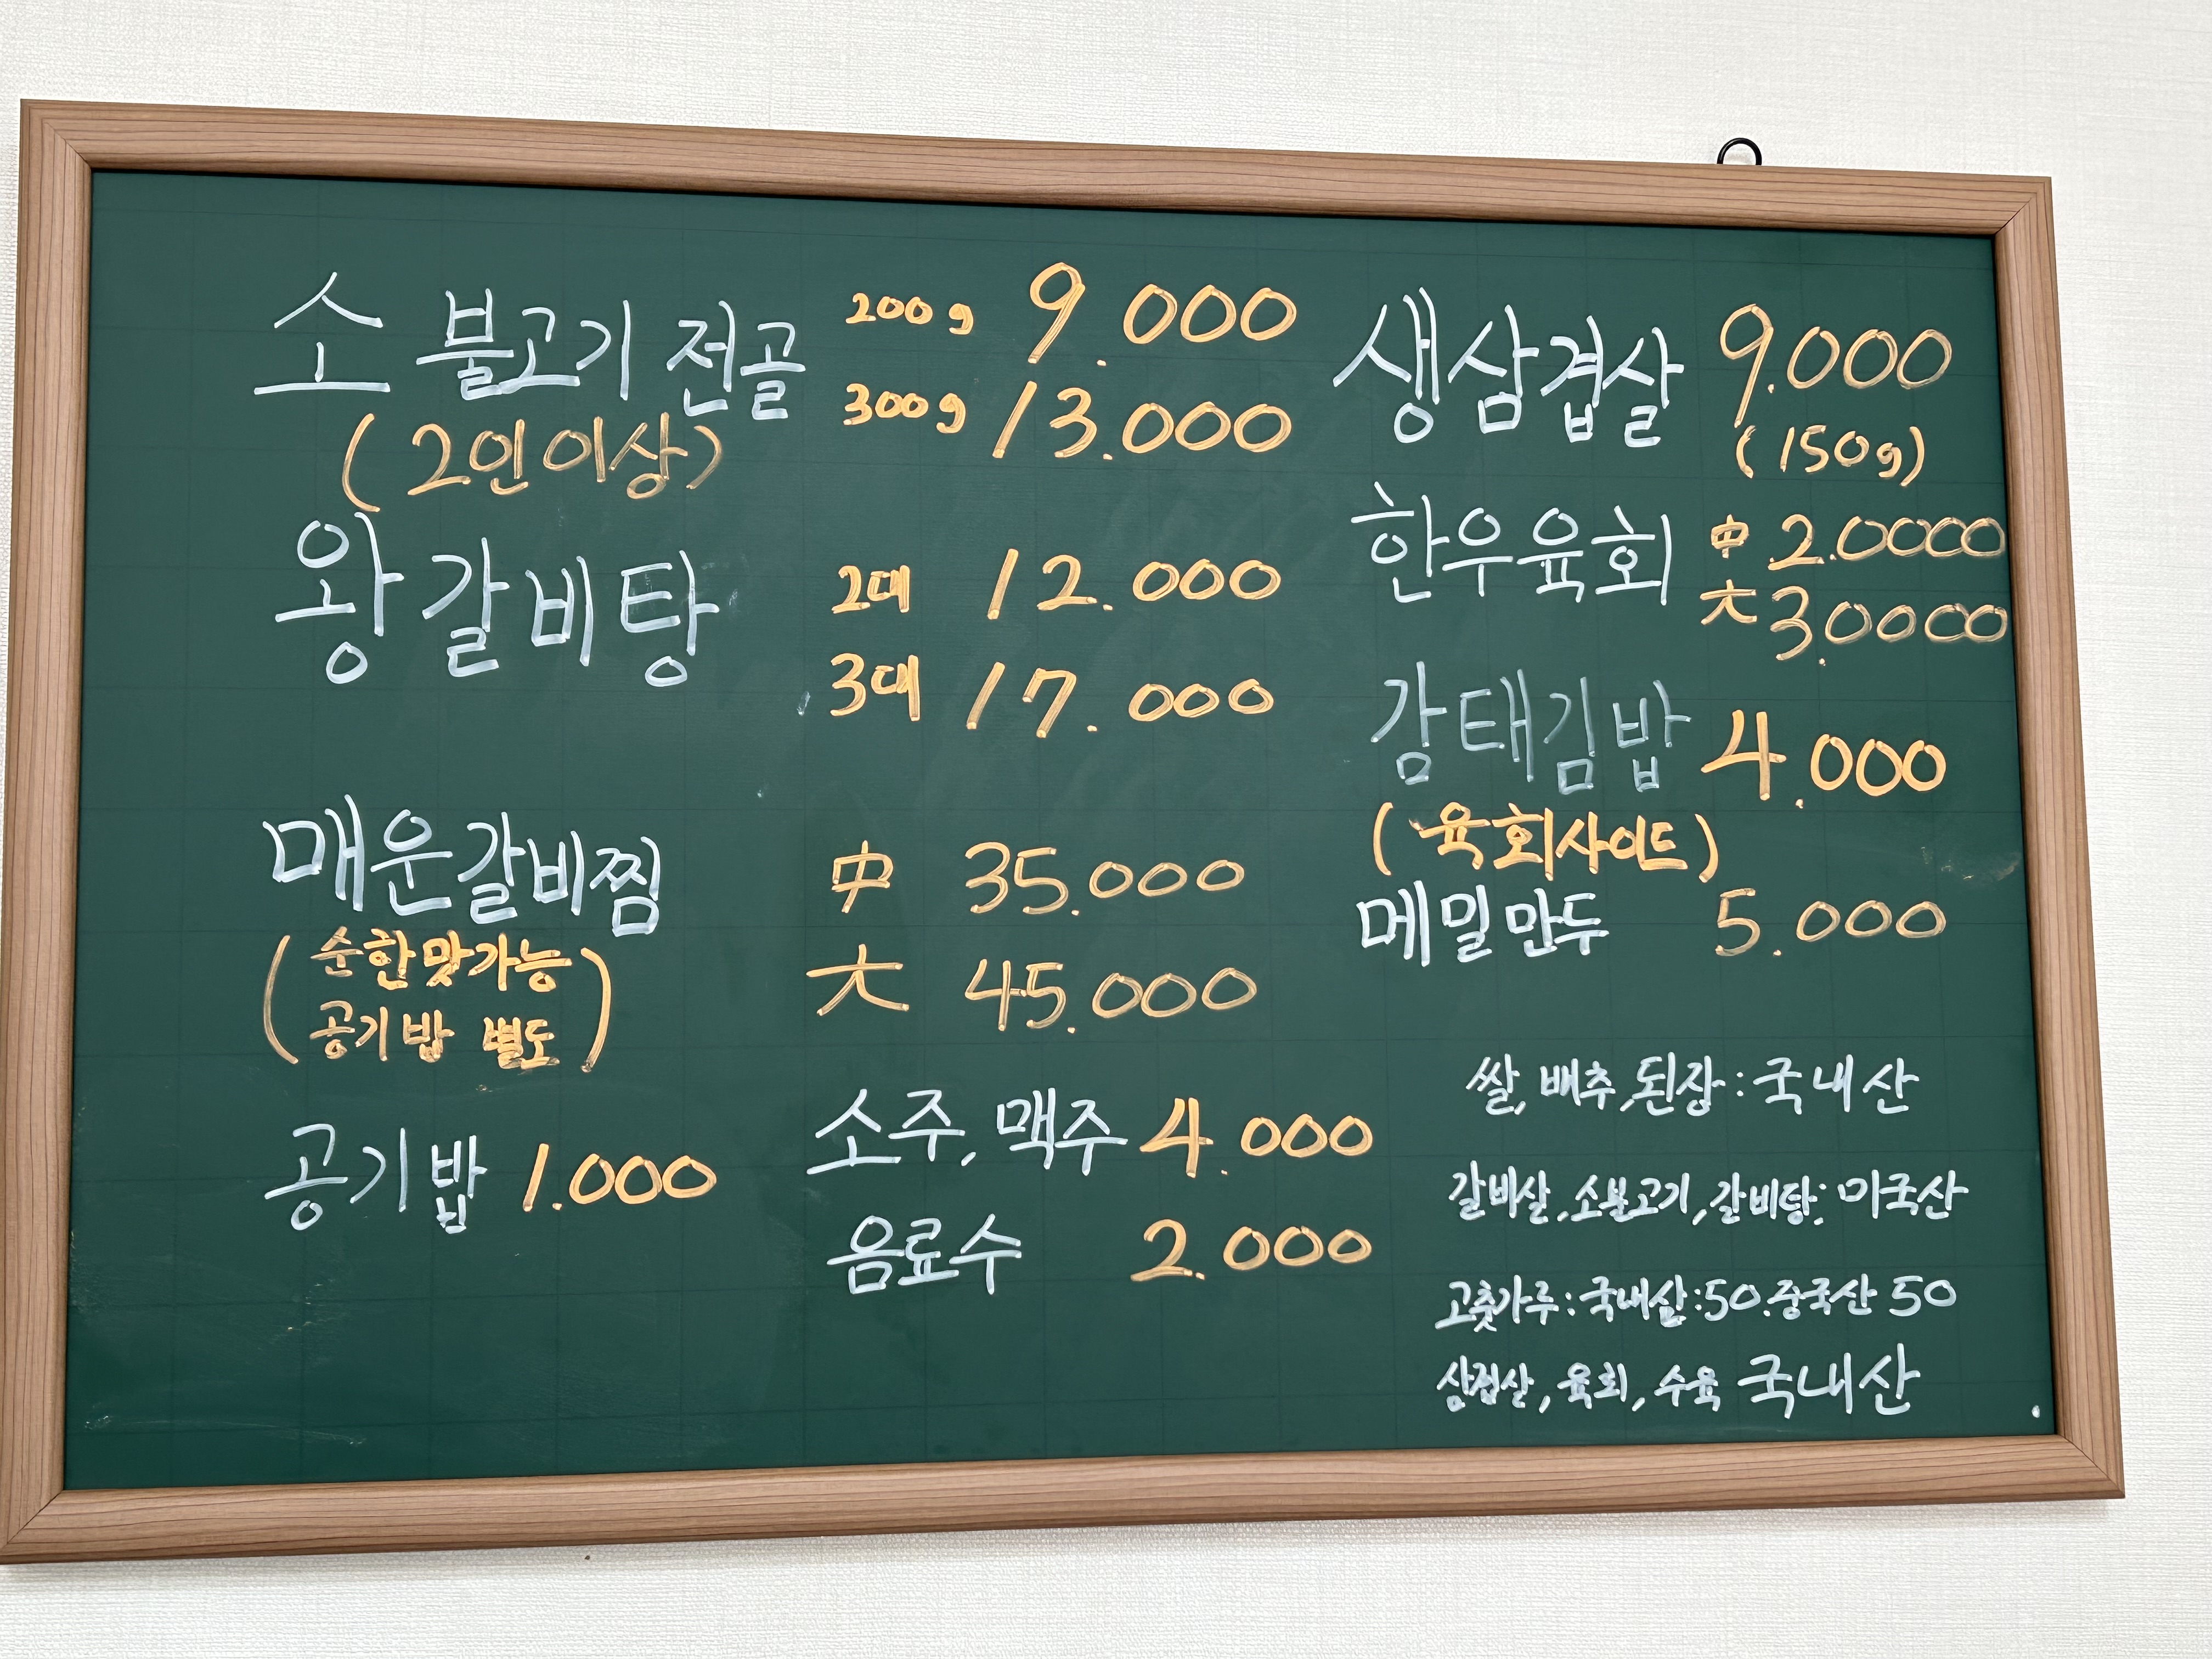 소 불고기 전골 200g 9.000
300g 13.000
(2인 이상)
왕갈비탕 2대 12.000
3대 17.000
매운갈비찜 中 35.000
大 45.000
(순한맛가능
공기밥 별도)
공기밥 1.000
소주, 맥주 4.000
음료수 2.000
생삼겹살 9.000
(150g)
한우육회 中 2.0000
大 3.0000
감태김밥 4.000
(육회사이드)
메밀만두 5.000
쌀, 배추, 된장 : 국내산
갈비살, 소불고기, 갈비탕: 미국산
고춧가루 : 국내산:50.중국산 50
삼겹살, 육회, 수육 국내산